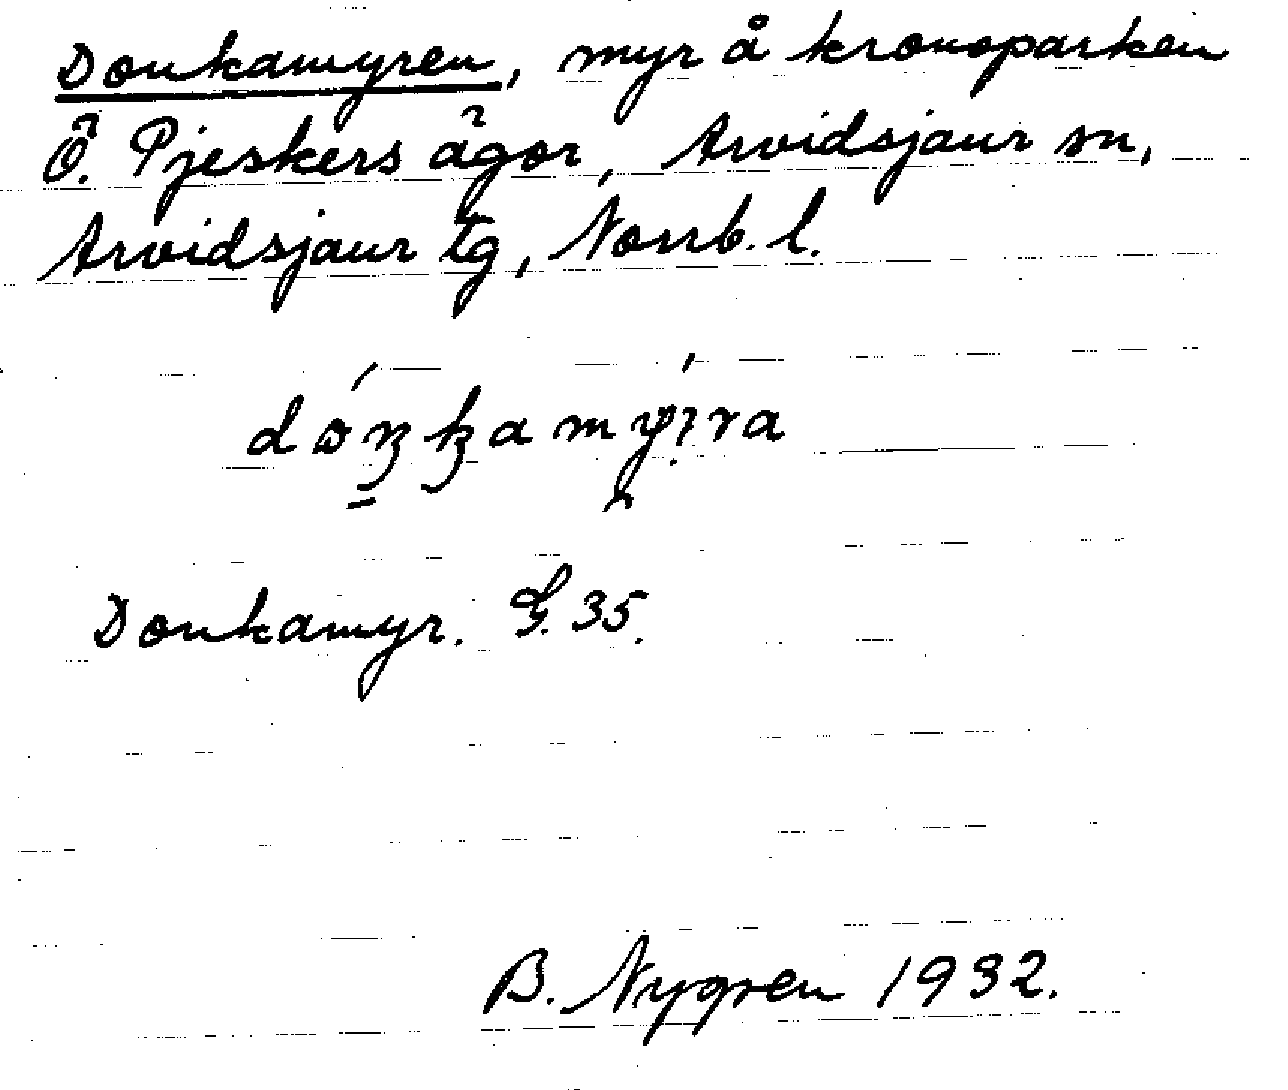 Donkamyren, myr å kronoparken
Ö. Pjeskers ägor, Arvidsjaur sn,
Arvidsjaur tg, Norrb. l.
Donkamyr. G. 35.
B. Nygren 1932.